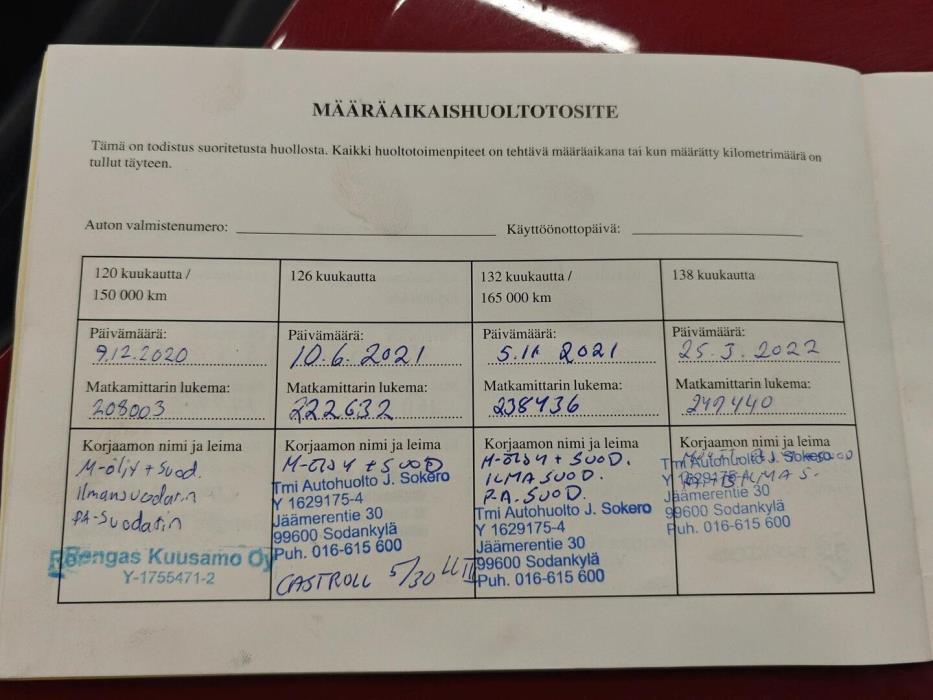 MÄÄRÄAIKAISHUOLTOTOSITE
Tämä on todistus suoritetusta huollosta. Kaikki huoltotoimenpiteet on tehtävä määräaikana tai kun määrätty kilometrimäärä on
tullut täyteen.
Auton valmistenumero:
Käyttöönottopäivä:
120 kuukautta /
150 000 km
Päivämäärä:
9.12.2020
Matkamittarin lukema:
208003
Korjaamon nimi ja leima
M-öljy + suod.
Ilmansuodatin
PA-suodatin
Rengas Kuusamo Oy
Y-1755471-2
126 kuukautta
Päivämäärä:
10.6.2021
Matkamittarin lukema:
222632
Korjaamon nimi ja leima
M-ÖLJY + SUOD
Tmi Autohuolto J. Sokero
Y 1629175-4
Jäämerentie 30
99600 Sodankylä
Puh. 016-615 600
CASTROLL 5/30 LL III
132 kuukautta /
165 000 km
Päivämäärä:
5.11 2021
Matkamittarin lukema:
238436
Korjaamon nimi ja leima
M-ÖLJY + SUOD.
ILMA SUOD.
P.A. SUOD.
Tmi Autohuolto J. Sokero
Y 1629175-4
Jäämerentie 30
99600 Sodankylä
Puh. 016-615 600
138 kuukautta
Päivämäärä:
25.3.2022
Matkamittarin lukema:
247440
Korjaamon nimi ja leima
Tmi Autohuolto J. Sokero
Y 1629175-4
Jäämerentie 30
99600 Sodankylä
Puh. 016-615 600